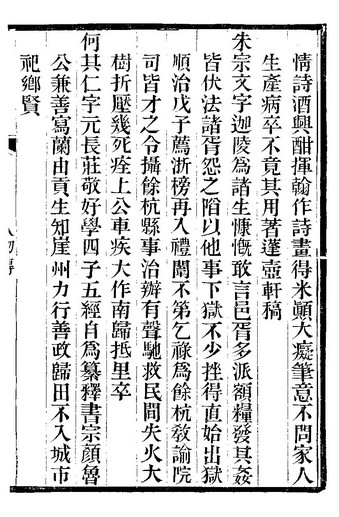 情詩酒興酣揮翰作詩畫得米顚大癡筆意不問家人
生產病卒不竟其用著蓬壺軒稿
朱宗文字迦陵為諸生慷慨敢言邑胥多派額糧發其姦
皆伏法諸胥怨之陷以他事下獄不少挫得直始出獄
順治戊子薦浙榜再入禮闈不第乞祿為餘杭敎諭院
司皆才之令攝餘杭縣事治辦有聲馳救民間失火大
樹折壓幾死痊上公車疾大作南歸抵里卒
何其仁字元長莊敬好學四子五經自為纂釋書宗顏魯
公兼善寫蘭由貢生知崖州力行善政歸田不入城市
祀鄉賢